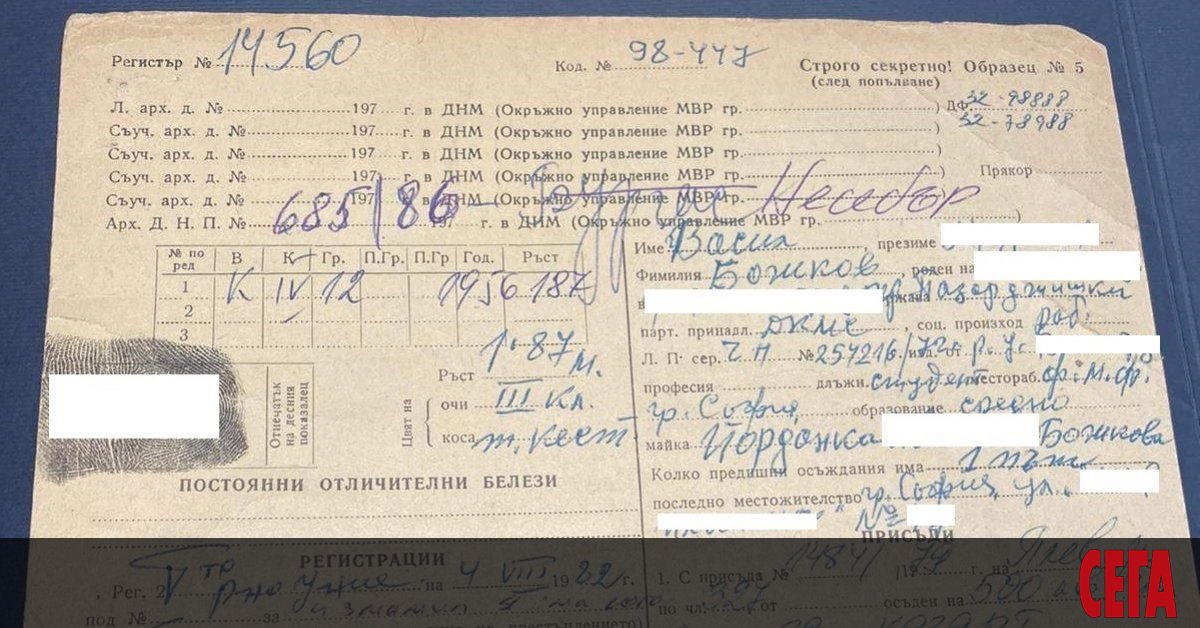 Регистър № 14560
Код. № 98-447
Строго секретно! Образец № 5
(след попълване)
Л. арх. д. № 197 г. в ДНМ (Окръжно управление МВР гр. ) ДФ 32-98888
Съуч. арх. д. № 197 г. в ДНМ (Окръжно управление МВР гр. ) 32-78988
Съуч. арх. д. № 197 г. в ДНМ (Окръжно управление МВР гр. )
Съуч. арх. д. № 197 г. в ДНМ (Окръжно управление МВР гр. Прякор
Съуч. арх. д. № 197 г. в ДНМ (Окръжно управление МВР гр. Несебър
Арх. Д. Н. П. № 685/86 197 г. в ДНМ (Окръжно управление МВР гр. )
№ по ред В К Гр. П.Гр. П.Гр Год. Ръст
1 К IV 12 1956 187
2
3
Отпечатък на десния показалец
Ръст 1.87 м.
Цвят на
очи III кл.
коса т. кест
ПОСТОЯННИ ОТЛИЧИТЕЛНИ БЕЛЕЗИ
Име Васил, презиме
Фамилия Божков, роден на
в Пазарджишки
парт. принадл. ДКМС, соц. произход раб.
Л. П. сер. Ч П № 257216/72 г. р. у.
професия длъжн. студент месtoраб. ф.м.ф.
гр. София, образование средно
майка Йорданка Божкова
Колко предишни осъждания има 1 път
последно местожителство гр. София, ул.
№
ПРИСЪДИ
РЕГИСТРАЦИИ
Рег. 2 V то рно уние на 4 VIII 1982 г.
под № за измамил
1. С присъда № 1484/79 на Плев
по чл. от осъден на 500
СЕГА